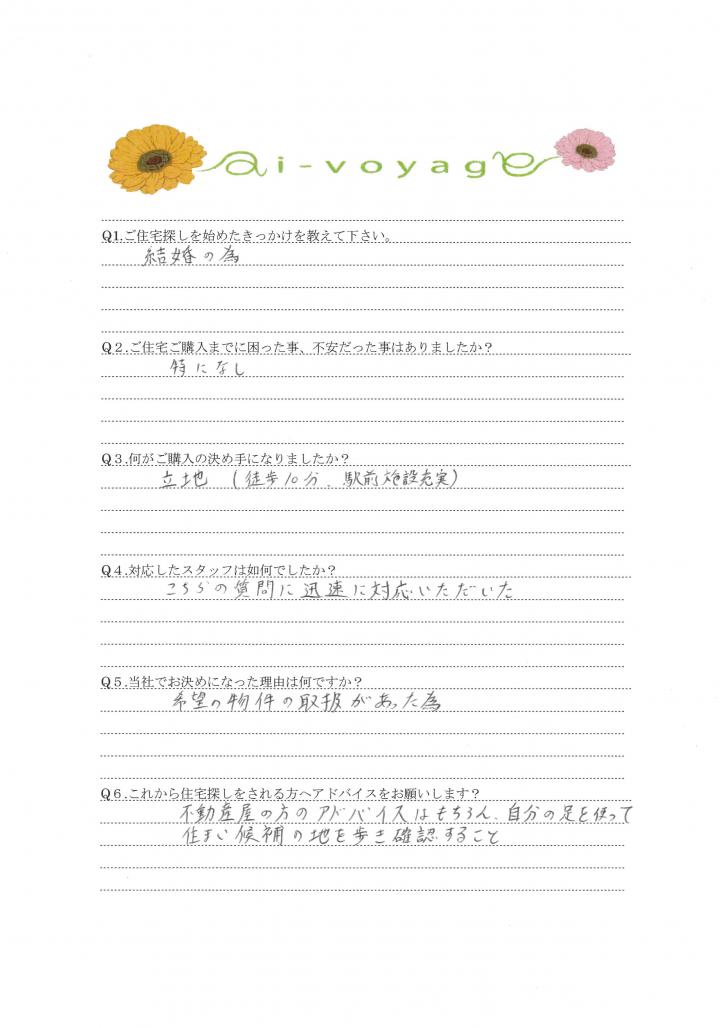 ai-voyage
Q1.ご住宅探しを始めたきっかけを教えて下さい。
結婚の為
Q２.ご住宅ご購入までに困った事、不安だった事はありましたか？
特になし
Q３.何がご購入の決め手になりましたか？
立地 (徒歩10分、駅前施設充実)
Q４.対応したスタッフは如何でしたか？
こちらの質問に迅速に対応いただいた
Q５.当社でお決めになった理由は何ですか？
希望の物件の取扱があった為
Q６.これから住宅探しをされる方へアドバイスをお願いします？
不動産屋の方のアドバイスはもちろん、自分の足を使って
住まい候補の地を歩き確認すること